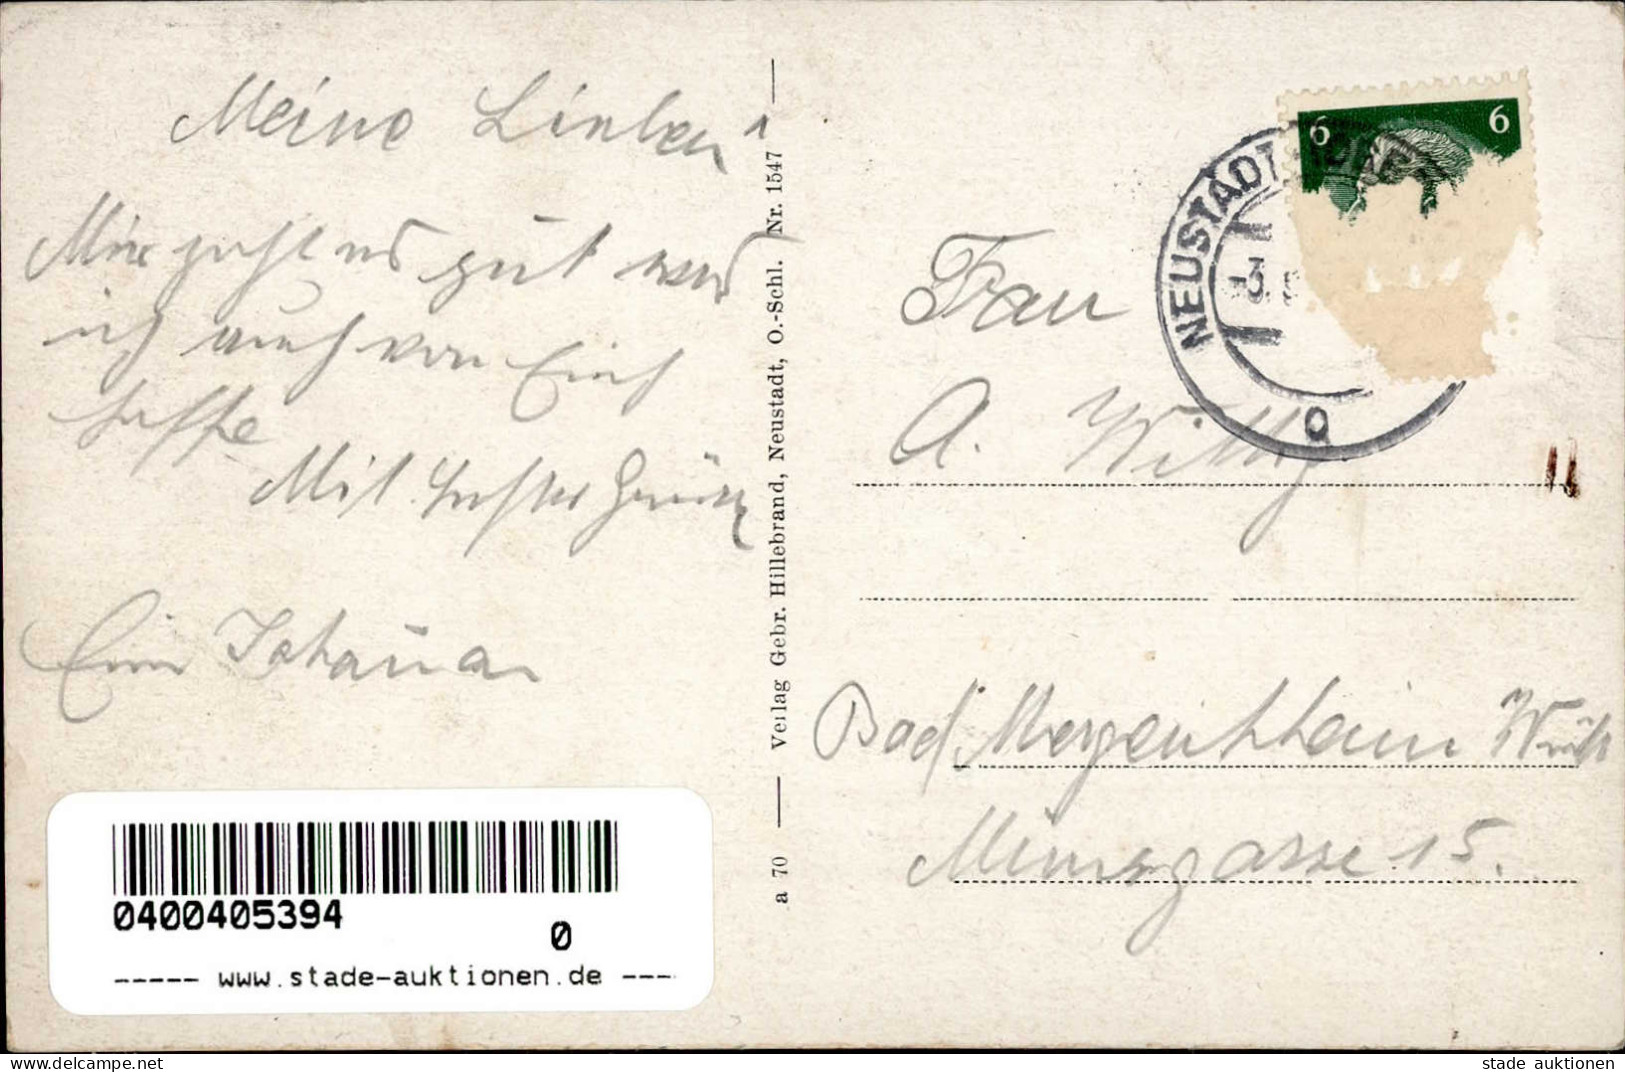 Meine Lieben
Mir geht es gut was
ich auch von Euch
hoffe
Mit besten Grüßen
Eure Johanna
Verlag Gebr. Hillebrand, Neustadt, O.-Schl. Nr. 1547
a 70
6 6
NEUSTADT
3.
a
Frau
A. Wittig
Bad Mergentheim Württ
15.
0400405394
0
----- www.stade-auktionen.de ----
stade auktionen
www.delcampe.net